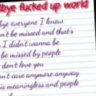 bye fucked up world
bye everyone I know
n't be missed and that's
I didn't wanna be
be missed by people
don't love you
n't care anymore anyway
is meaningless and people